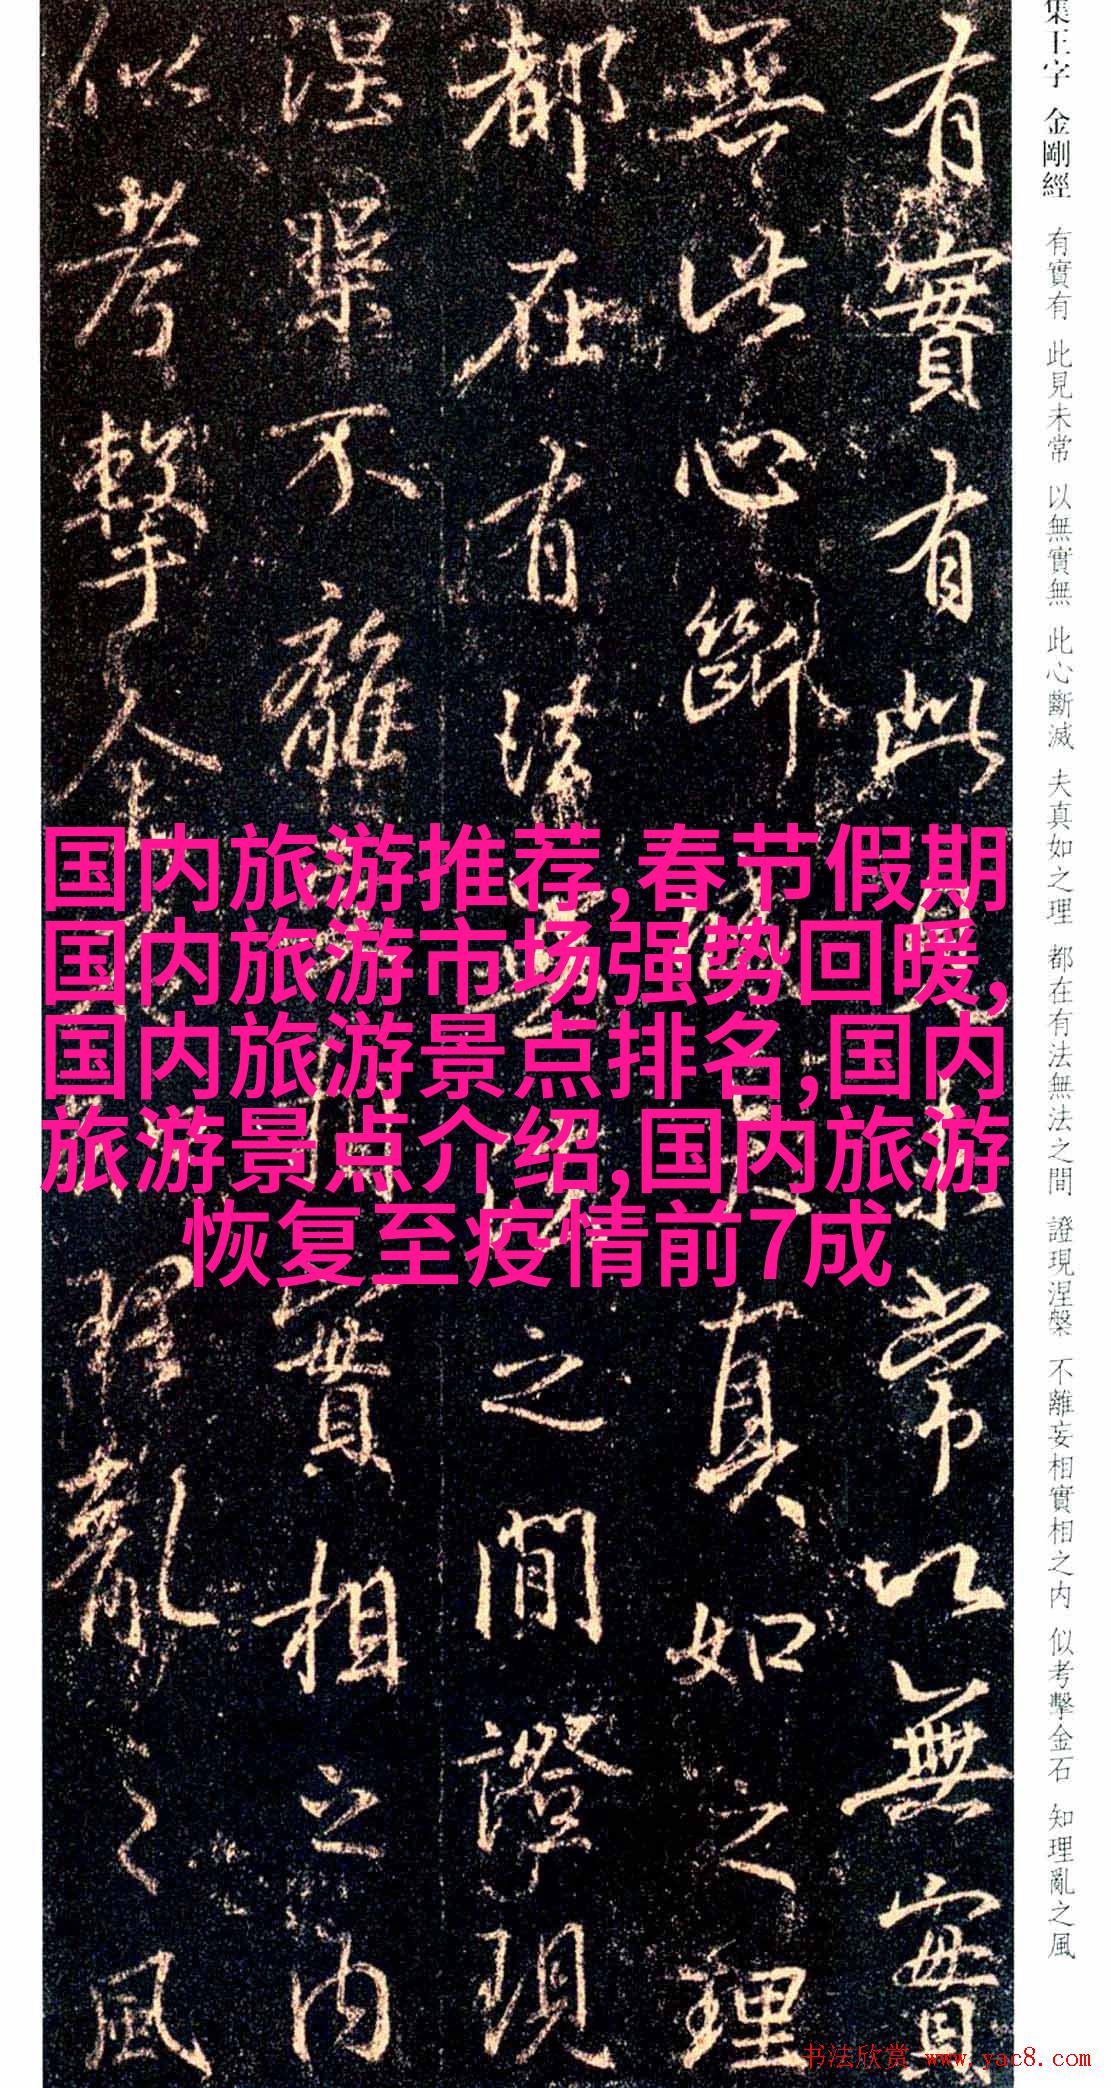 集王字 金剛經 有實有 此見未常 以無實無 此心斷滅 夫真如之理 都在有法無法之間 證現涅槃 不離妄相實相之内 似考擊金石 知理亂之風
有實有此見未常以無實
無此心斷滅夫真如之理
都在有法無法之間證現
涅槃不離妄相實相之内
似考擊金石知理亂之風
国内旅游推荐,春节假期
国内旅游市场强势回暖,
国内旅游景点排名,国内
旅游景点介绍,国内旅游
恢复至疫情前7成
书法欣赏 www.yac8.com